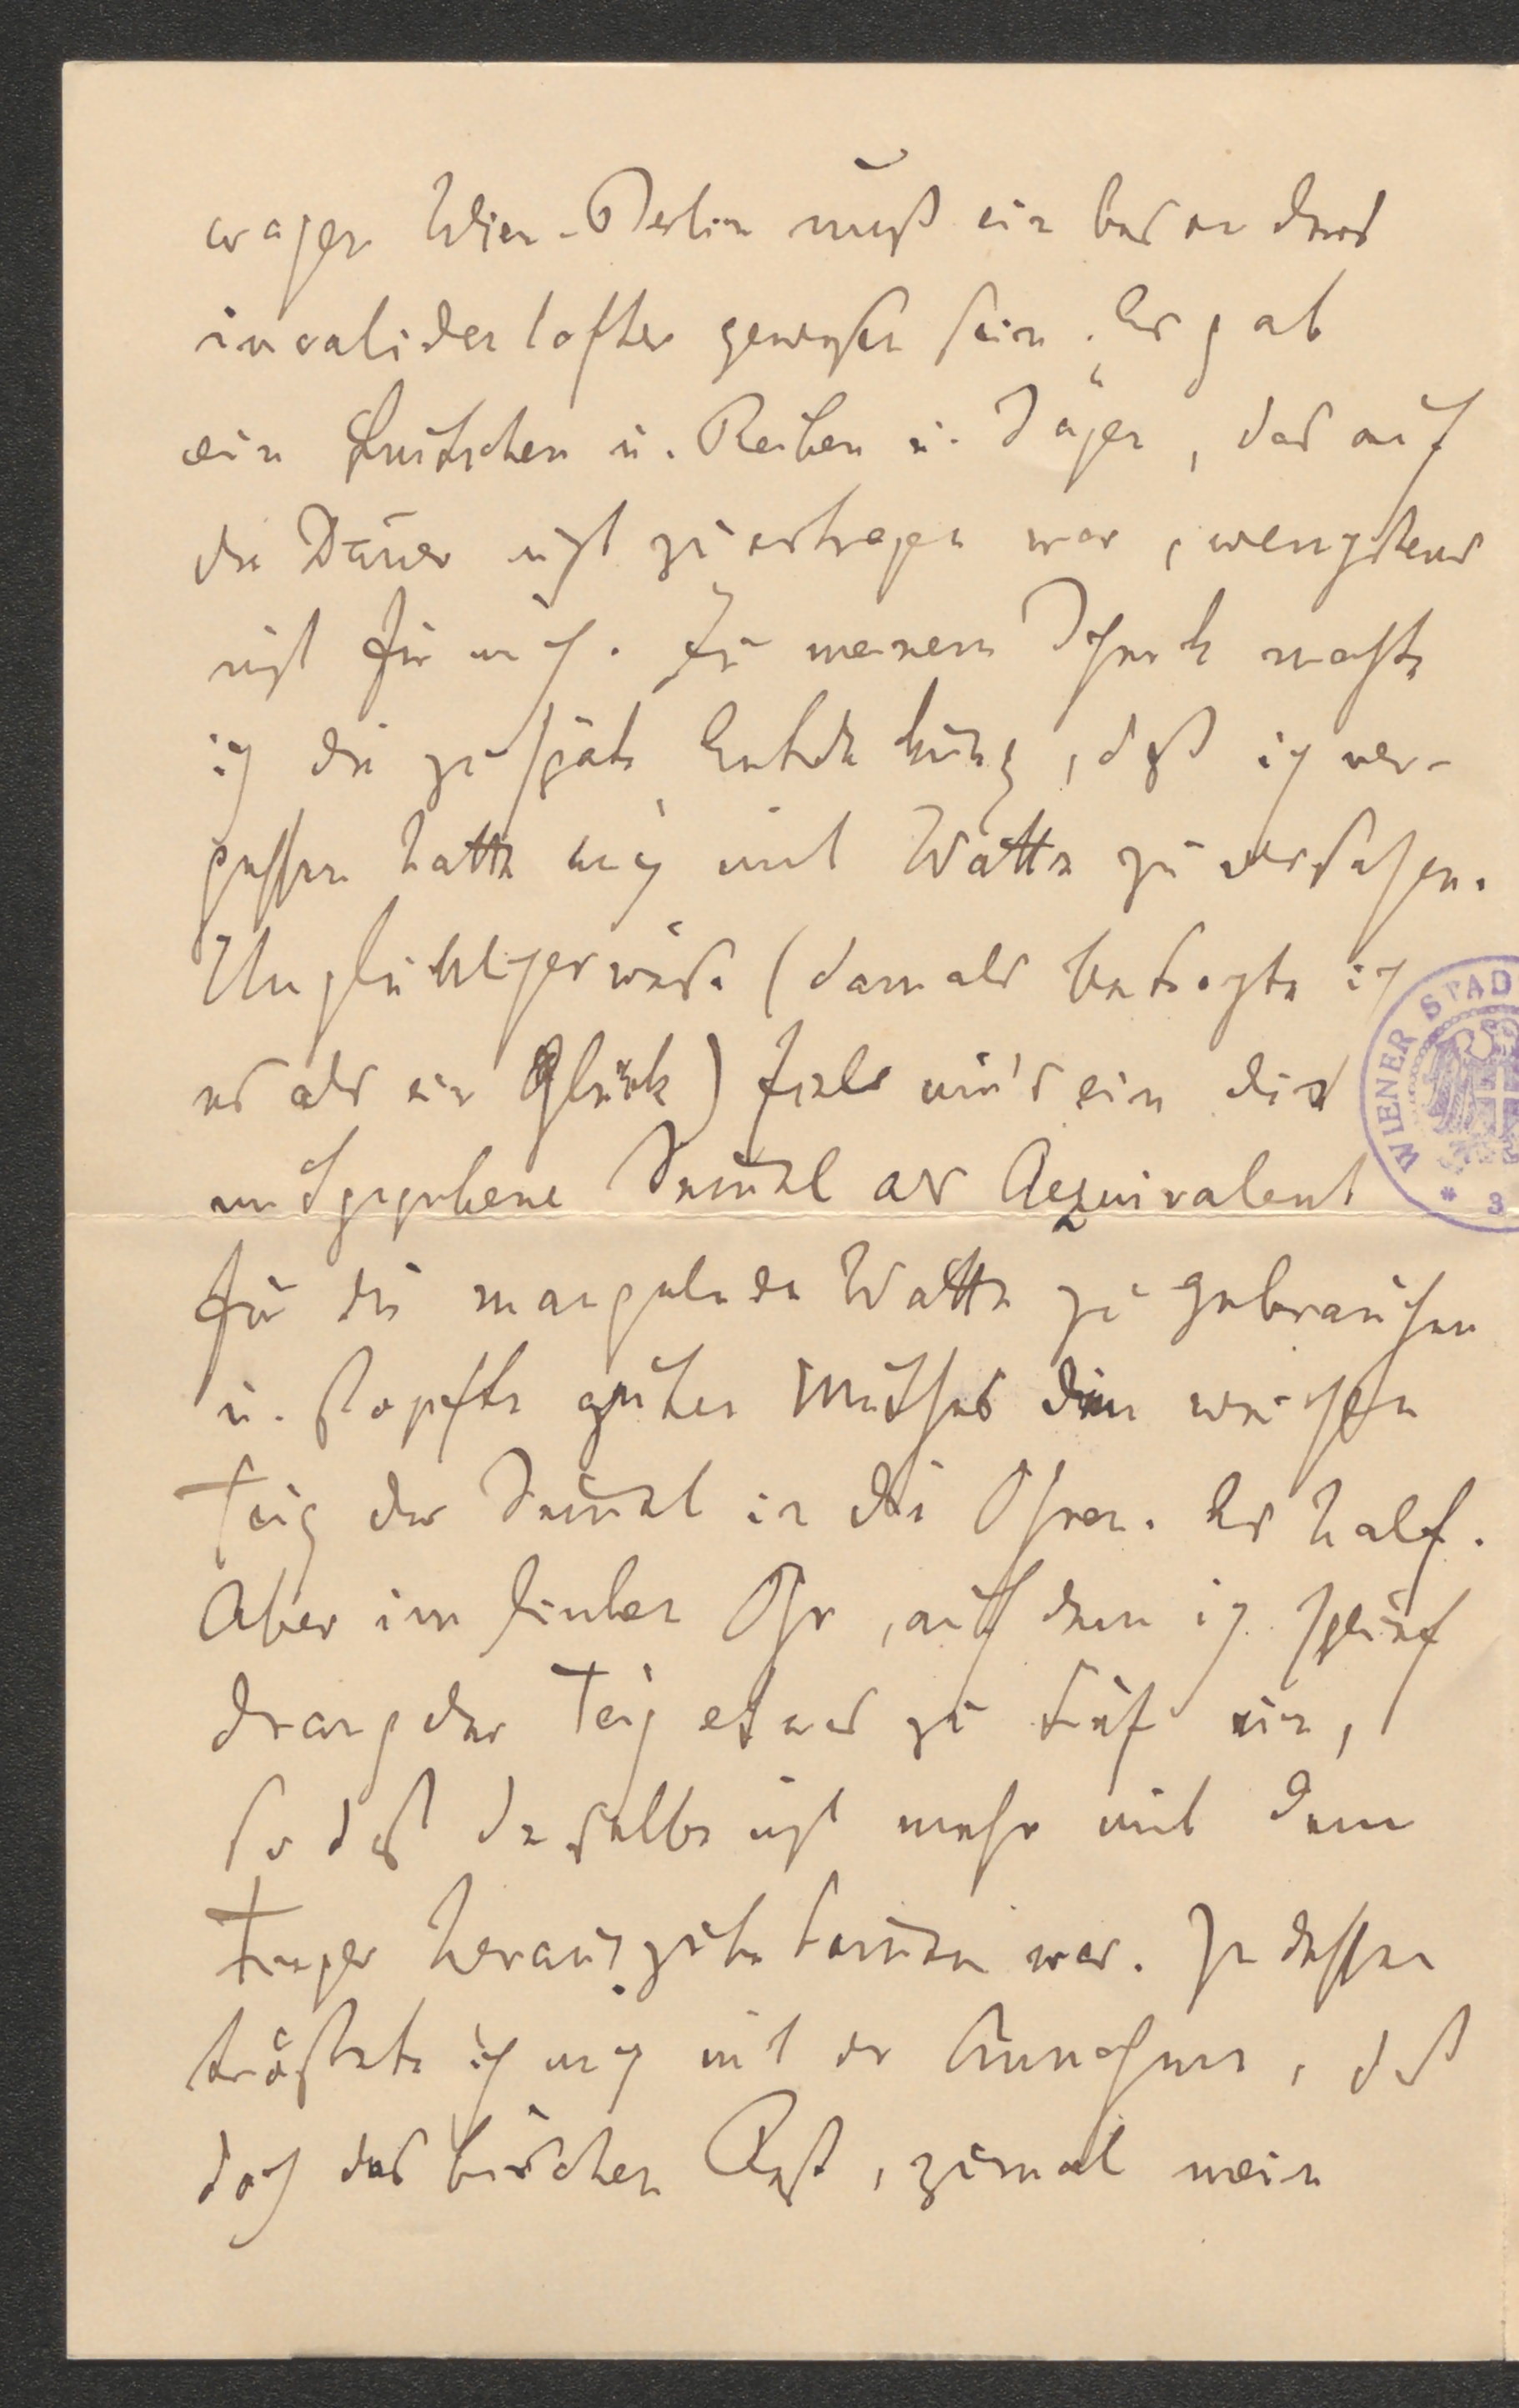 wagen Wien-Berlin muß ein besonders
invalidenhafter gewesen sein. Es gab
ein Quitschen u. Reiben u. Sägen, das auf
die Dauer nicht zu ertragen war, wenigstens
nicht für mich. Zu meinem Schreck machte
ich die zu späte Entdeckung, daß ich ver-
gessen hatte mich mit Watte zu versehen.
Unglücklicherweise (damals betrachtete ich
es als ein Glück) fiels mir's ein die
mitgegebene Semmel als Aequivalent
für die mangelnde Watte zu gebrauchen
u. stopfte guten Muthes den weichen
Teig der Semmel in die Ohren. Es half.
Aber im linken Ohr, auf dem ich schlief
drang der Teig etwas zu tief ein,
so daß derselbe nicht mehr mit dem
Finger herauszubekommen war. Indessen
tröstete ich mich mit der Annahme, daß
doch das bischen Rest, zumal mein
WIENER STAD
* 3